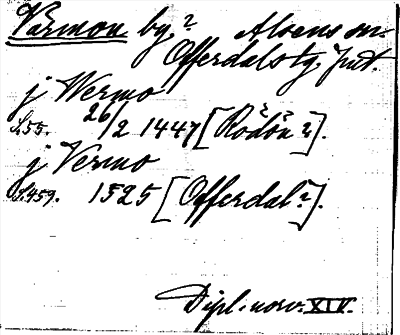 Värmon by? Alsens sn.
Offerdals tg, Jmtl.
j Wermo
S. 55. 26/2 1447 [Rödön?].
j Vermo
S. 459. 1525 [Offerdal?].
Dipl. norv. XIV.